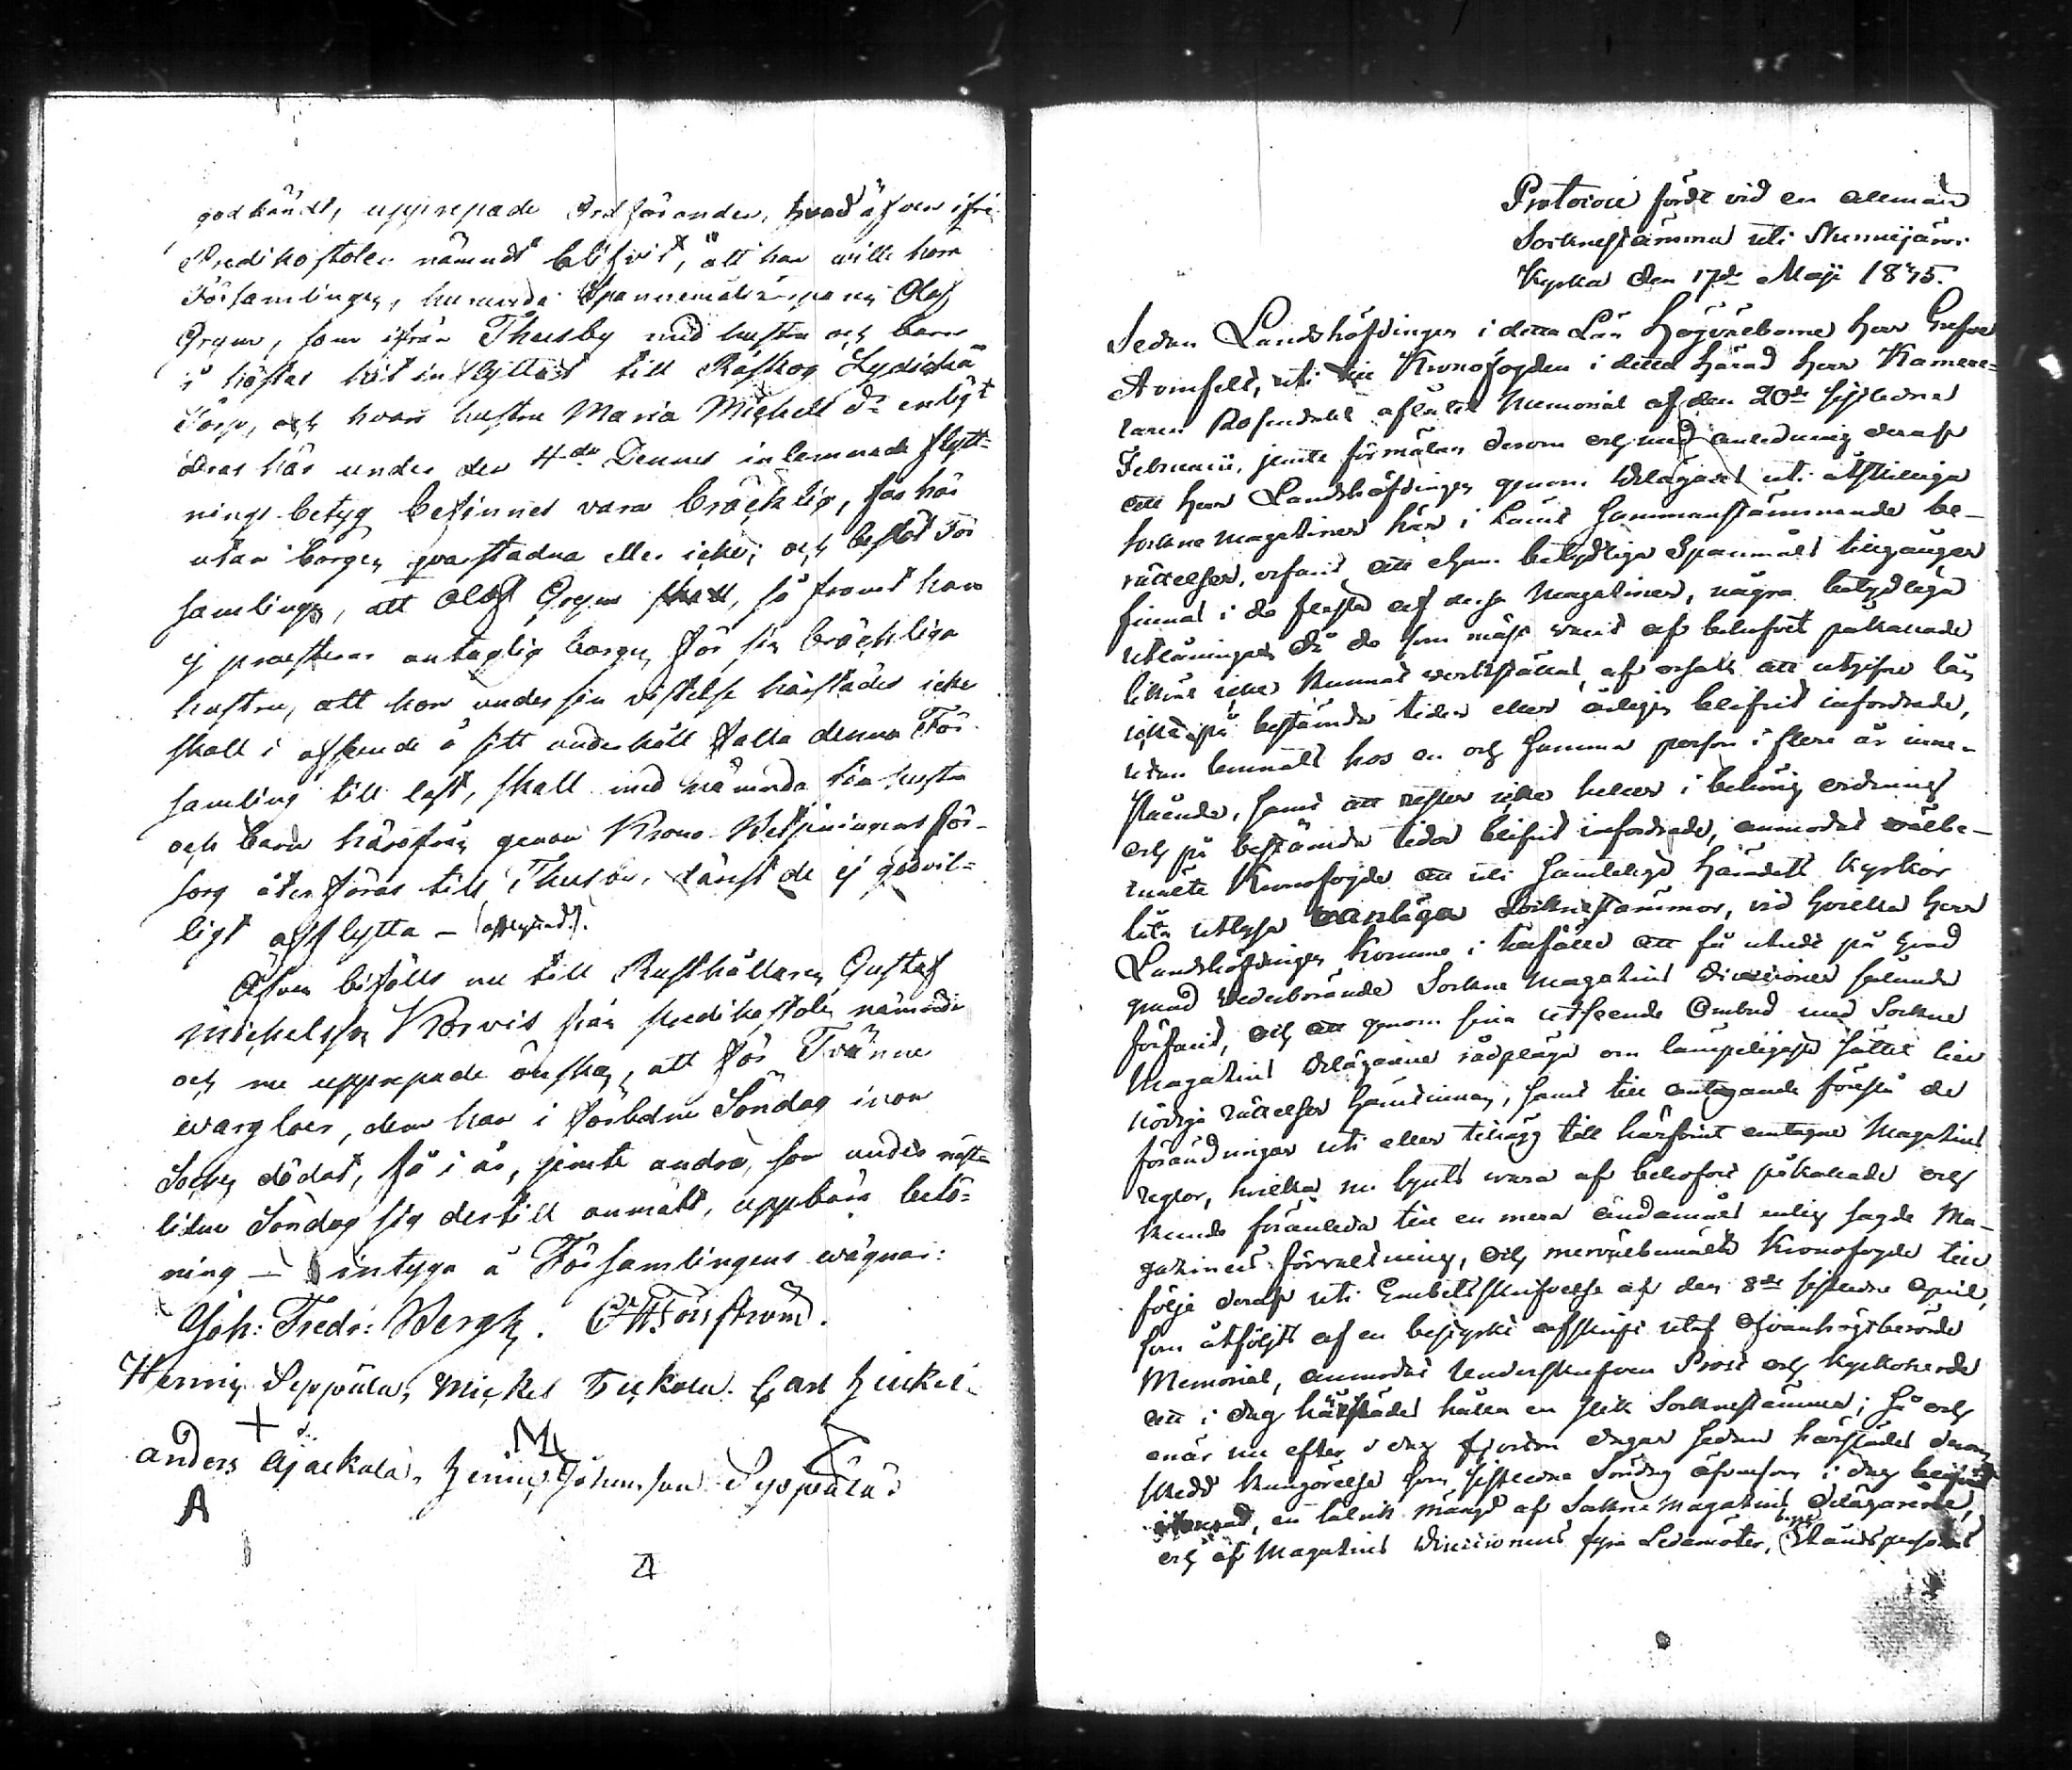 godkändt, upprepade Ordföranden, hvad äfven ifrå
Predikostolen nämndt blifvit, att han wille höra
Församlingen, huruvida Spannemåls Olof
Grym, som ifrån Thusby med hustru och barn
i höstas hit inflyttat till Råskog Lydickä
Torp, och hvars hustru Maria Michelsdr enligt
deras här under den 4de Dennes inlemnade flytt-
nings betyg befinnes vara bräcklig, får här
utan borgen qvarstadna eller icke; och beslöt För
samlingen, att Olof Grym, så framt han
ej praesterar antaglig borgen för sin bräckliga
hustru, att hon under sin vistelse härstädes icke
skall i afseende å sitt underhåll falla denna För-
samling till last, skall med nämnda sin hustru
och barn härifrån genom Krono Betjeningens för-
sorg återföras till Thusby, därest de ej godvil-
ligt afflytta –
Äfven bifölls nu till Rusthållaren Gustaf
Michelsson Korvis från predikostolen nämnda
och nu upprepade önskan, att för Tvänne
wargloer, dem han i förledne Söndag inom
Socknen dödat, få i år, jemte andra, som under näst-
lidne Söndag sig dertill anmält, uppbära belö-
ning – intyga å Församlingens wägnar:
Joh: Fredr: Bergh. C Forsström.
Henric Seppälä, Mickel Tuckala. Carl Heikel-
Anders Ajackala, Henric Johansson Seppälä
A
Protocoll fördt vid en allmän
Socknestämma uti Nummijärvi
Kyrka den 17de Maji 1845.
Sedan Landshöfdingen i detta Län Högvälborne Herr Grefve
Armfelt, uti till Kronofogden i detta härad Herr Kamere-
raren Rosendahl aflåtit Memorial af den 20de sistledne
Februarii, jemte förmälan derom och med anledning deraf
att Herr Landshöfdingen genom Delägares uti åtskilliga
Sockne Magasiner här i Länet sammanstämmande be-
rättelser, erfarit att ehuru betydliga Spanmåls tillgångar
finnas i de flesta af dessa Magasiner, några betydliga
utlåningar då de som mäst varit af behofvet påkallade
likväl icke kunnat verkställas, af orsak att utgifne lån
icke på bestämda tider eller årligen blifvit infordrade,
utan lemnats hos en och samma person i flere år inne-
stående, samt att rester icke heller i behörig ordning
och på bestämda tider blifvit infordrade, anmodat välbe-
mälte Kronofogde att uti samtelige häradets Kyrkor
låta utlysa Socknestämmor, vid hvilka Herr
Landshöfdingen komme i tillfälle att få utredt på hvad
grund vederbörande Sockne Magasins Directioner sålunda
förfarit, och att genom sina utseende Ombud med Sockne
Magasins Delägarene rådpläga om lämpeligaste sättet till
nödiga rättelser hämtninnan, samt till antagande föreslå de
förändringar uti eller tillägg till härförut antagne Magasins
reglor, hvilka nu synts vara af behofvet påkallade och
kunde föranleda till en mera ändamåls enlig sagde Ma-
gasiners förvaltning, och mervälbemälte Kronofogde till
följe deraf uti Embetsskrifvelse af den 8de sistledne April,
som åtföljts af en bestyrkt afskrift utaf ofvanhögtberörde
Memorial, anmodat Underskrifven Prost och Kyrkoherde
att i dag härstädes hålla en slik Socknestämma; så och
enär nu efter i dag fjorton dagar sedan härstädes derom
skedd kungörelse som sistledne Söndag äfvensom i dag blifvit
, en talrik mängd af Sockne Magasins Delägarene,
och af Magasins Directionens fyra Ledamöter, Ståndspersons